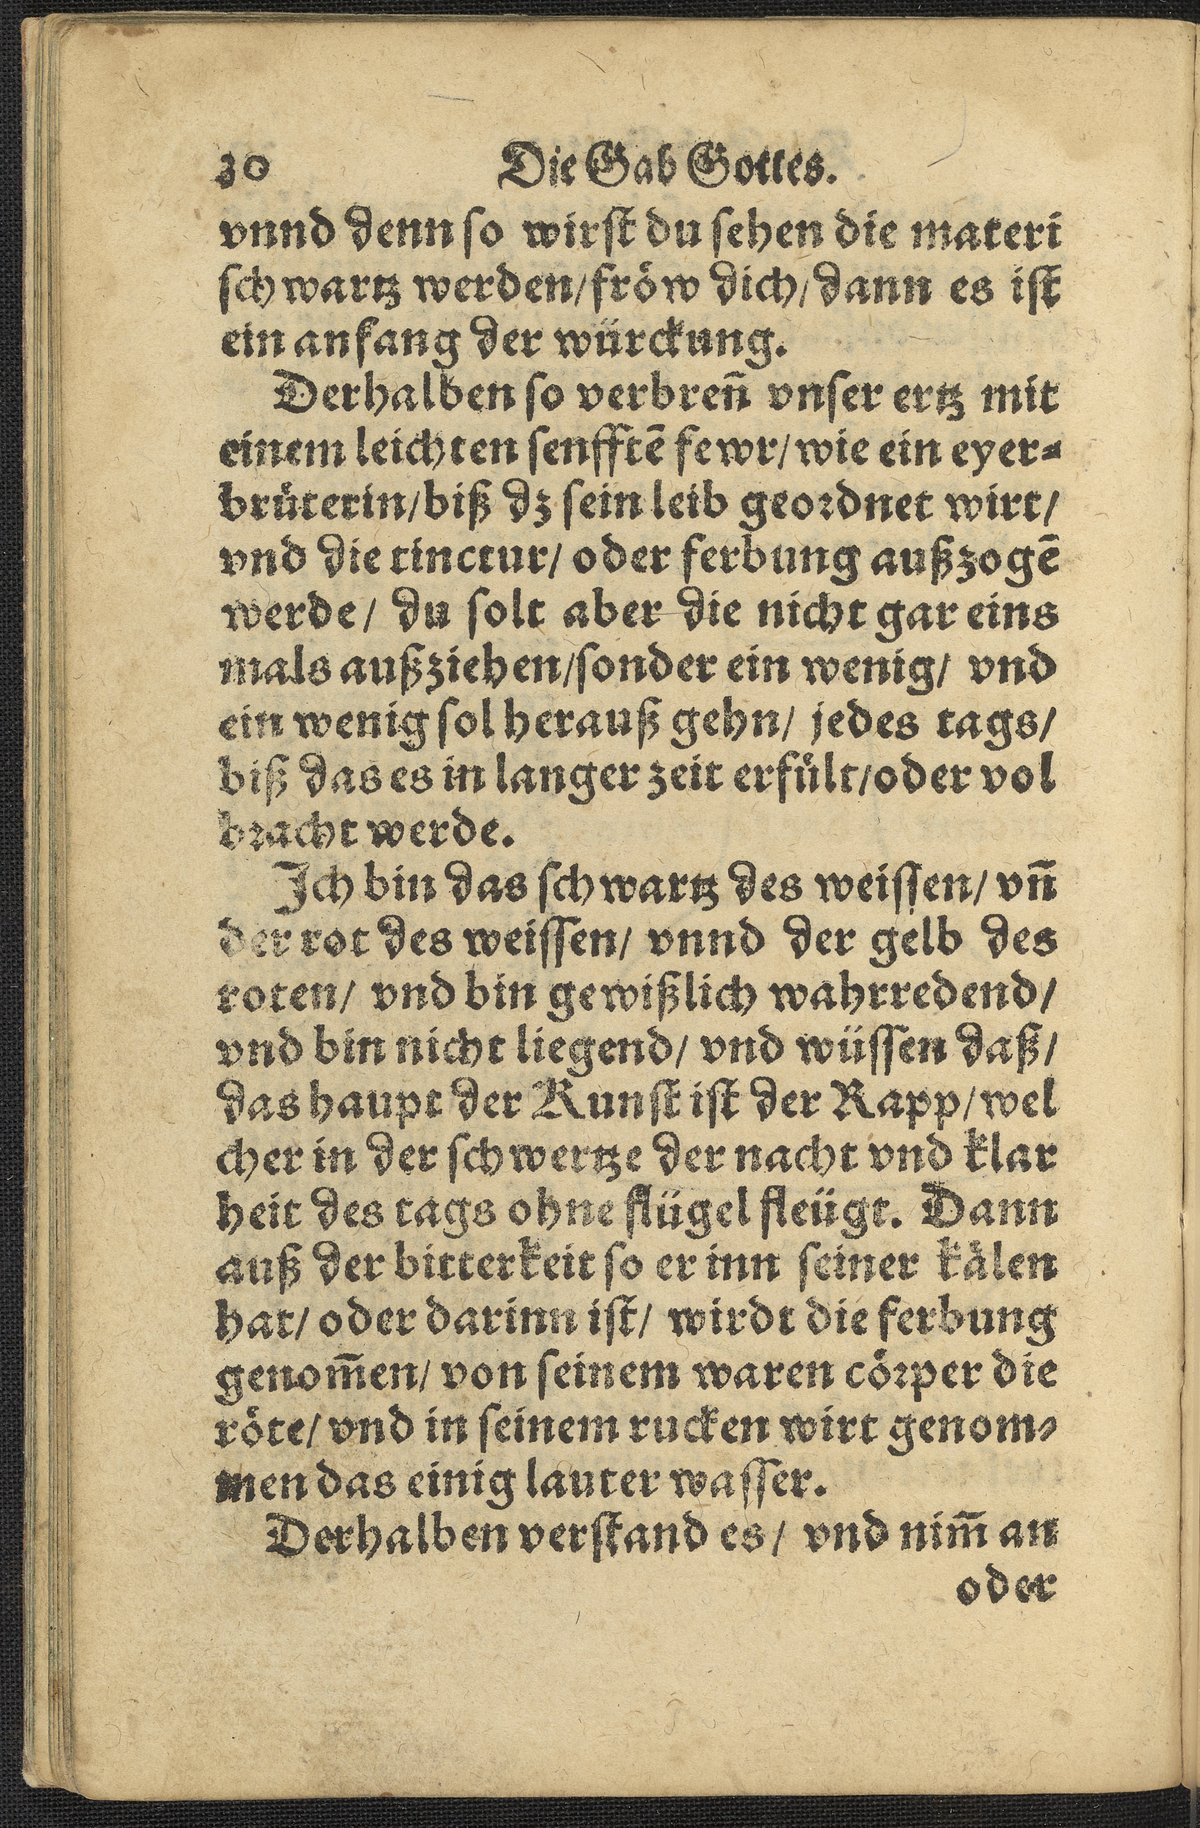 30 Die Gab Gottes.
vnnd denn so wirst du sehen die materi
schwartz werden/fröw dich/dann es ist
ein anfang der würckung.
Derhalben so verbreñ vnser ertz mit
einem leichten senfftẽ fewr/wie ein eyer-
brüterin/biß dz sein leib geordnet wirt/
vnd die tinctur/ oder ferbung außzogẽ
werde/ du solt aber die nicht gar eins
mals außziehen/sonder ein wenig/ vnd
ein wenig sol herauß gehn/ jedes tags/
biß das es in langer zeit erfült/oder vol
bracht werde.
Ich bin das schwartz des weissen/ vñ
der rot des weissen/ vnnd der gelb des
roten/ vnd bin gewißlich wahrredend/
vnd bin nicht liegend/ vnd wüssen daß/
das haupt der Kunst ist der Rapp/wel
cher in der schwertze der nacht vnd klar
heit des tags ohne flügel fleügt. Dann
auß der bitterkeit so er inn seiner kälen
hat/ oder darinn ist/ wirdt die ferbung
genom̃en/ von seinem waren cörper die
röte/ vnd in seinem rucken wirt genom-
men das einig lauter wasser.
Derhalben verstand es/ vnd nim̃ an
oder